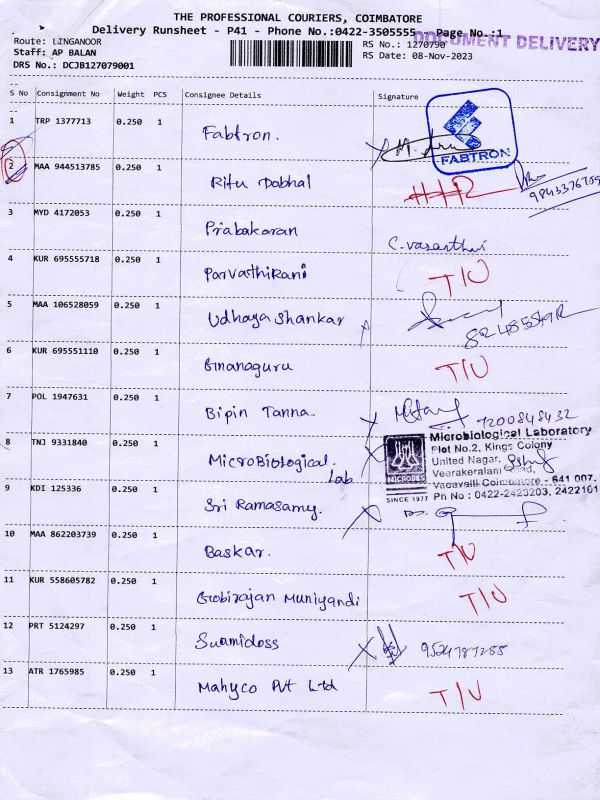 THE PROFESSIONAL COURIERS, COIMBATORE
Delivery Runsheet - P41 - Phone No.:0422-3505555 Page No.:1
DOCUMENT DELIVERY
Route: LINGANOOR RS No.: 1270790
Staff: AP BALAN RS Date: 08-Nov-2023
DRS No.: DCJB127079001
S No Consignment No Weight PCS Consignee Details Signature
1 TRP 1377713 0.250 1 Fabtron.
FABTRON
2 MAA 944513785 0.250 1 Ritu Dobhal
3 MYD 4172053 0.250 1 Prabakaran C. vasanthi
4 KUR 695555718 0.250 1 Parvathirani T/U
5 MAA 106528059 0.250 1 Udhaya Shankar
6 KUR 695551110 0.250 1 Gnanaguru T/U
7 POL 1947631 0.250 1 Bipin Tanna 7200848432
8 TNJ 9331840 0.250 1 MicroBiological Lab
MICROBES
SINCE 1977
Microbiological Laboratory
Plot No.2, Kings Colony
United Nagar,
Veerakeralam Road,
Vadavalli Coimbatore - 641 007.
Ph No : 0422-2423203, 2422101
9 KDI 125336 0.250 1 Sri Ramasamy.
10 MAA 862203739 0.250 1 Baskar. T/U
11 KUR 558605782 0.250 1 Gobirajan Muniyandi T/U
12 PRT 5124297 0.250 1 Suamidoss
13 ATR 1765985 0.250 1 Mahyco Pvt Ltd T/U